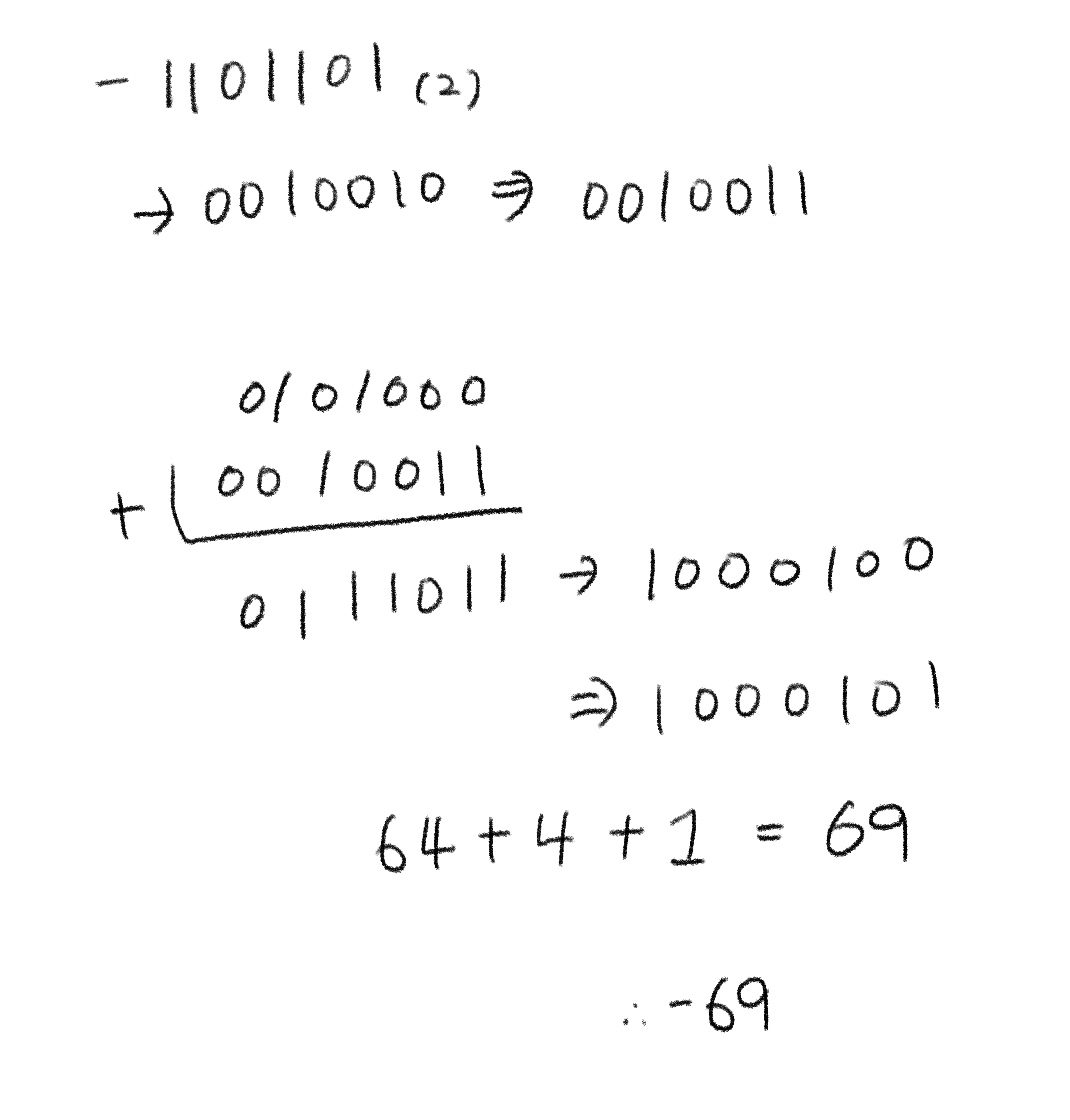 - 1101101 (2)
→ 0010010 ⇒ 0010011
0101000
+ 0010011
0111011 → 1000100
⇒ 1000101
64 + 4 + 1 = 69
∴ -69